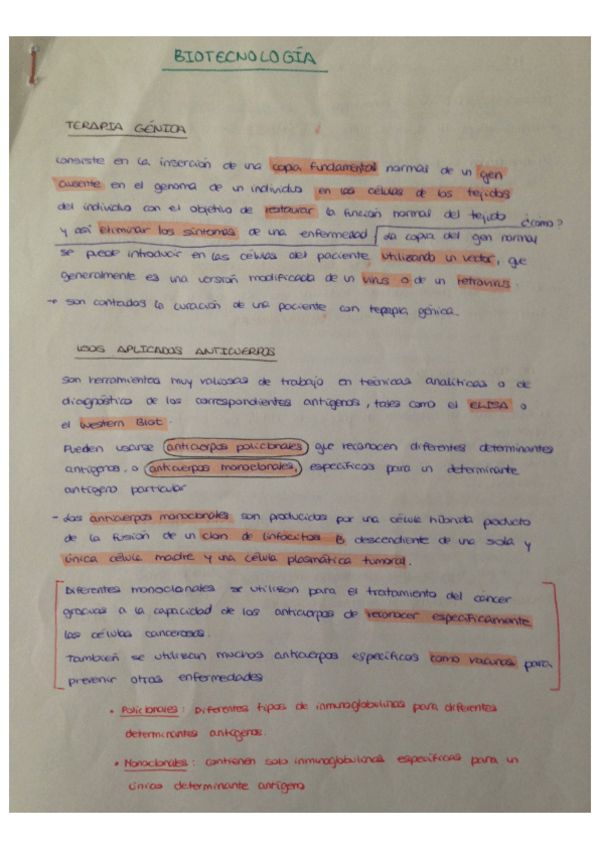 BIOTECNOLOGÍA
TERAPIA GÉNICA
consiste en la inserción de una copia fundamental normal de un gen
ausente en el genoma de un individuo en las células de los tejidos
del individuo con el objetivo de restaurar la función normal del tejido ¿como?
y así eliminar los síntomas de una enfermedad La copia del gen normal
se puede introducir en las células del paciente utilizando un vector, que
generalmente es una versión modificada de un virus o de un retrovirus.
→ son contados la curación de un paciente con terapia génica.
USOS APLICADOS ANTICUERPOS
Son herramientas muy valiosas de trabajo en técnicas analíticas o de
diagnóstico de los correspondientes antígenos, tales como el ELISA o
el Western Blot.
Pueden usarse anticuerpos policlonales que reconocen diferentes determinantes
antígenos, o anticuerpos monoclonales, específicos para un determinante
antígeno particular
- Los anticuerpos monoclonales son producidos por una célula híbrida producto
de la fusión de un clon de linfocitos B descendiente de una sola y
única célula madre y una célula plasmática tumoral.
Diferentes monoclonales se utilizan para el tratamiento del cáncer
gracias a la capacidad de los anticuerpos de reconocer específicamente
las células cancerosas.
También se utilizan muchos anticuerpos específicos como vacunas para
prevenir otras enfermedades
• Policlonales: Diferentes tipos de inmunoglobulinas para diferentes
determinantes antígenos.
• Monoclonales: contienen solo inmunoglobulinas específicas para un
único determinante antígeno